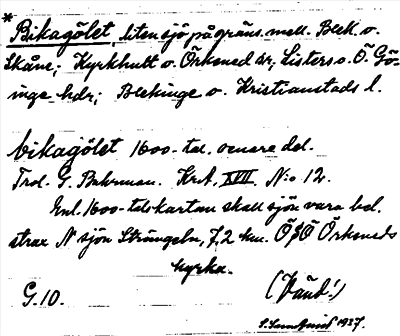 * Bikagölet, liten sjö på gräns. mell. Blek. o.
Skåne; Kyrkhult o. Örkened sr, Listers o. Ö Gö-
inge hdr; Blekinge o. Kristianstads l.
bikagölet 1600-tal. senare del.
Trol. G. Buhrman. KrA, XVII. N:o 12.
Enl. 1600-talskartan skall sjön vara bel.
strax N sjön Strångeln, 7,2 km. ÖSÖ Örkeneds
kyrka.
G. 10.
1927.